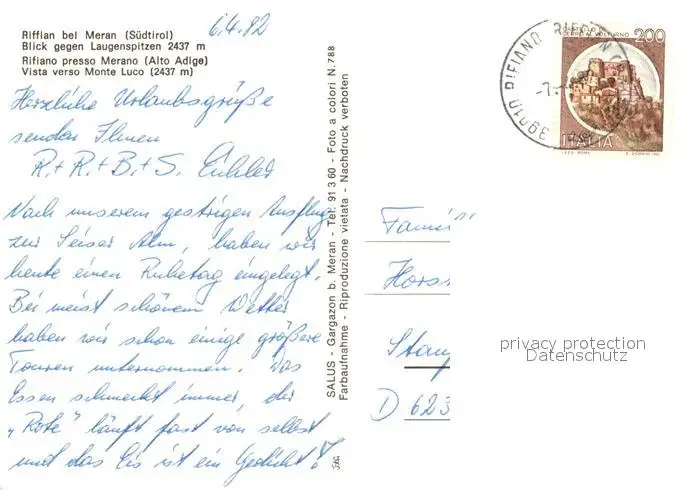 Riffian bei Meran (Südtirol)
Blick gegen Laugenspitzen 2437 m
Rifiano presso Merano (Alto Adige)
Vista verso Monte Luco (2437 m)
6.4.82
Herzliche Urlaubsgrüße
senden Ihnen
R. + R. + B. + S.
Nach unserem gestrigen Ausflug
zur Seiser Alm, haben wir
heute einen Ruhetag eingelegt.
Bei meist schönem Wetter
haben wir schon einige größere
Touren unternommen. Das
Essen schmeckt immer, der
„Rote" läuft fast von selbst
und das Eis ist ein Gedicht!
SALUS - Gargazon b. Meran - Tel. 91 3 60 - Foto a colori N. 788
Farbaufnahme - Riproduzione vietata - Nachdruck verboten
CASTELLO DI
CERRO AL VOLTURNO
200
ITALIA
I.P.Z.S. ROMA
39010 RIFIANO
D 623
privacy protection
Datenschutz